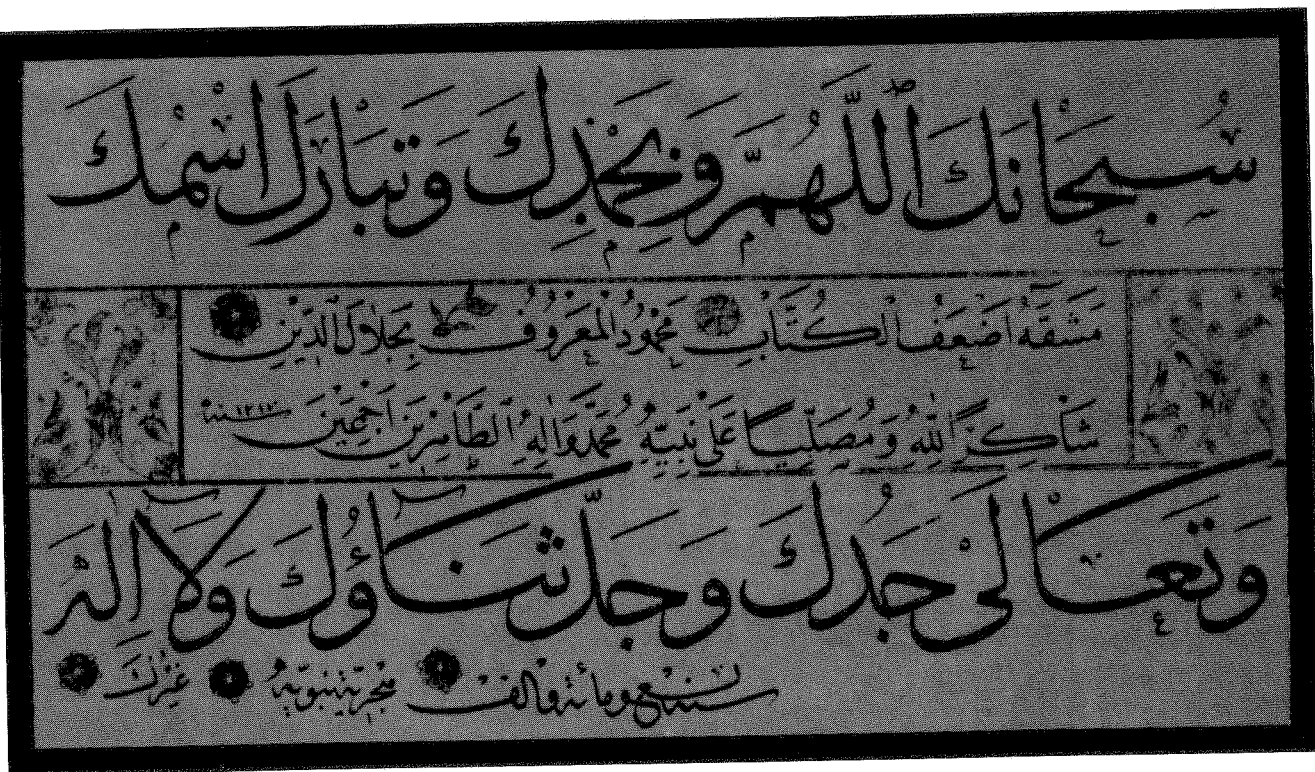 سُبْحَانَكَ ٱللَّهُمَّ وَبِحَمْدِكَ وَتَبَارَكَ اسْمُكَ
مَشَقَهُ اَضْعَفُ الْكُتَّابِ مَحْمُودُ الْمَعْرُوفُ بِجَلَالِ الدِّينِ
شَاكِرًا لِلّٰهِ وَمُصَلِّيًا عَلَى نَبِيِّهِ مُحَمَّدٍ وَاٰلِهِ الطَّاهِرِينَ اَجْمَعِينَ سنة ١٢١٧
وَتَعَالَى جَدُّكَ وَجَلَّ ثَنَاؤُكَ وَلَا اِلٰهَ
غَيْرُكَ هجرية نبوية
ومائة والف